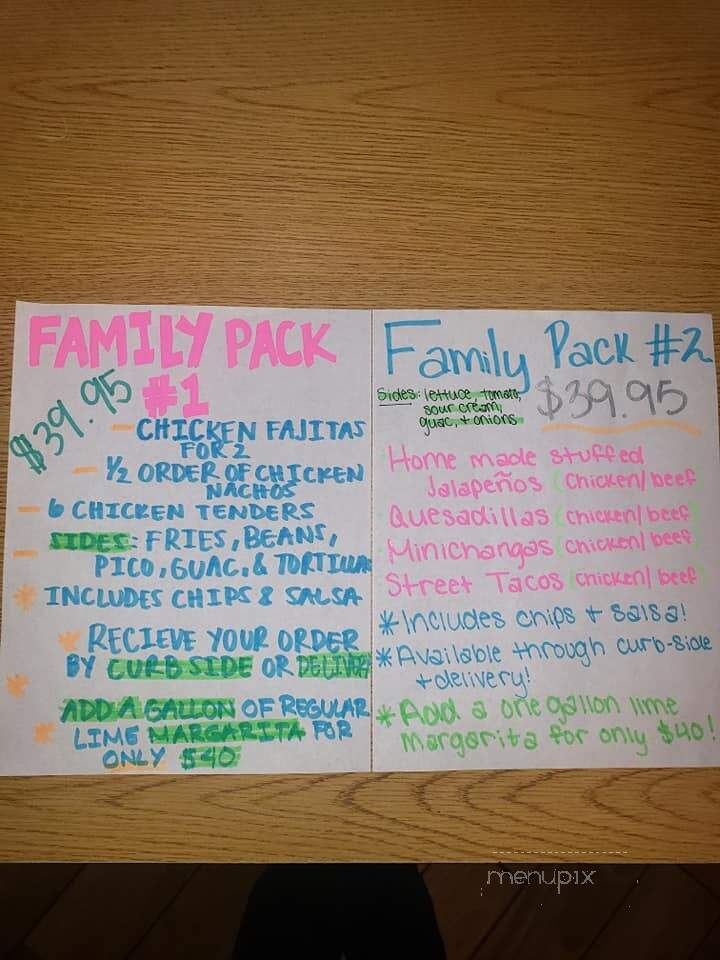 FAMILY PACK
#1
$39.95
- CHICKEN FAJITAS
FOR 2
- 1/2 ORDER OF CHICKEN
NACHOS
- 6 CHICKEN TENDERS
- SIDES: FRIES, BEANS,
PICO, GUAC, & TORTILLAS
* INCLUDES CHIPS & SALSA
* RECIEVE YOUR ORDER
BY CURBSIDE OR DELIVERY
* ADD A GALLON OF REGULAR
* LIME MARGARITA FOR
ONLY $40
Family Pack #2
Sides: lettuce, tomato,
sour cream,
guac, + onions
$39.95
Home made stuffed
Jalapeños (Chicken/beef)
Quesadillas (Chicken/beef)
Minichangas (Chicken/beef)
Street Tacos (Chicken/beef)
* Includes chips + salsa!
* Available through curb-side
+ delivery!
* Add a one gallon lime
margarita for only $40!
menupix